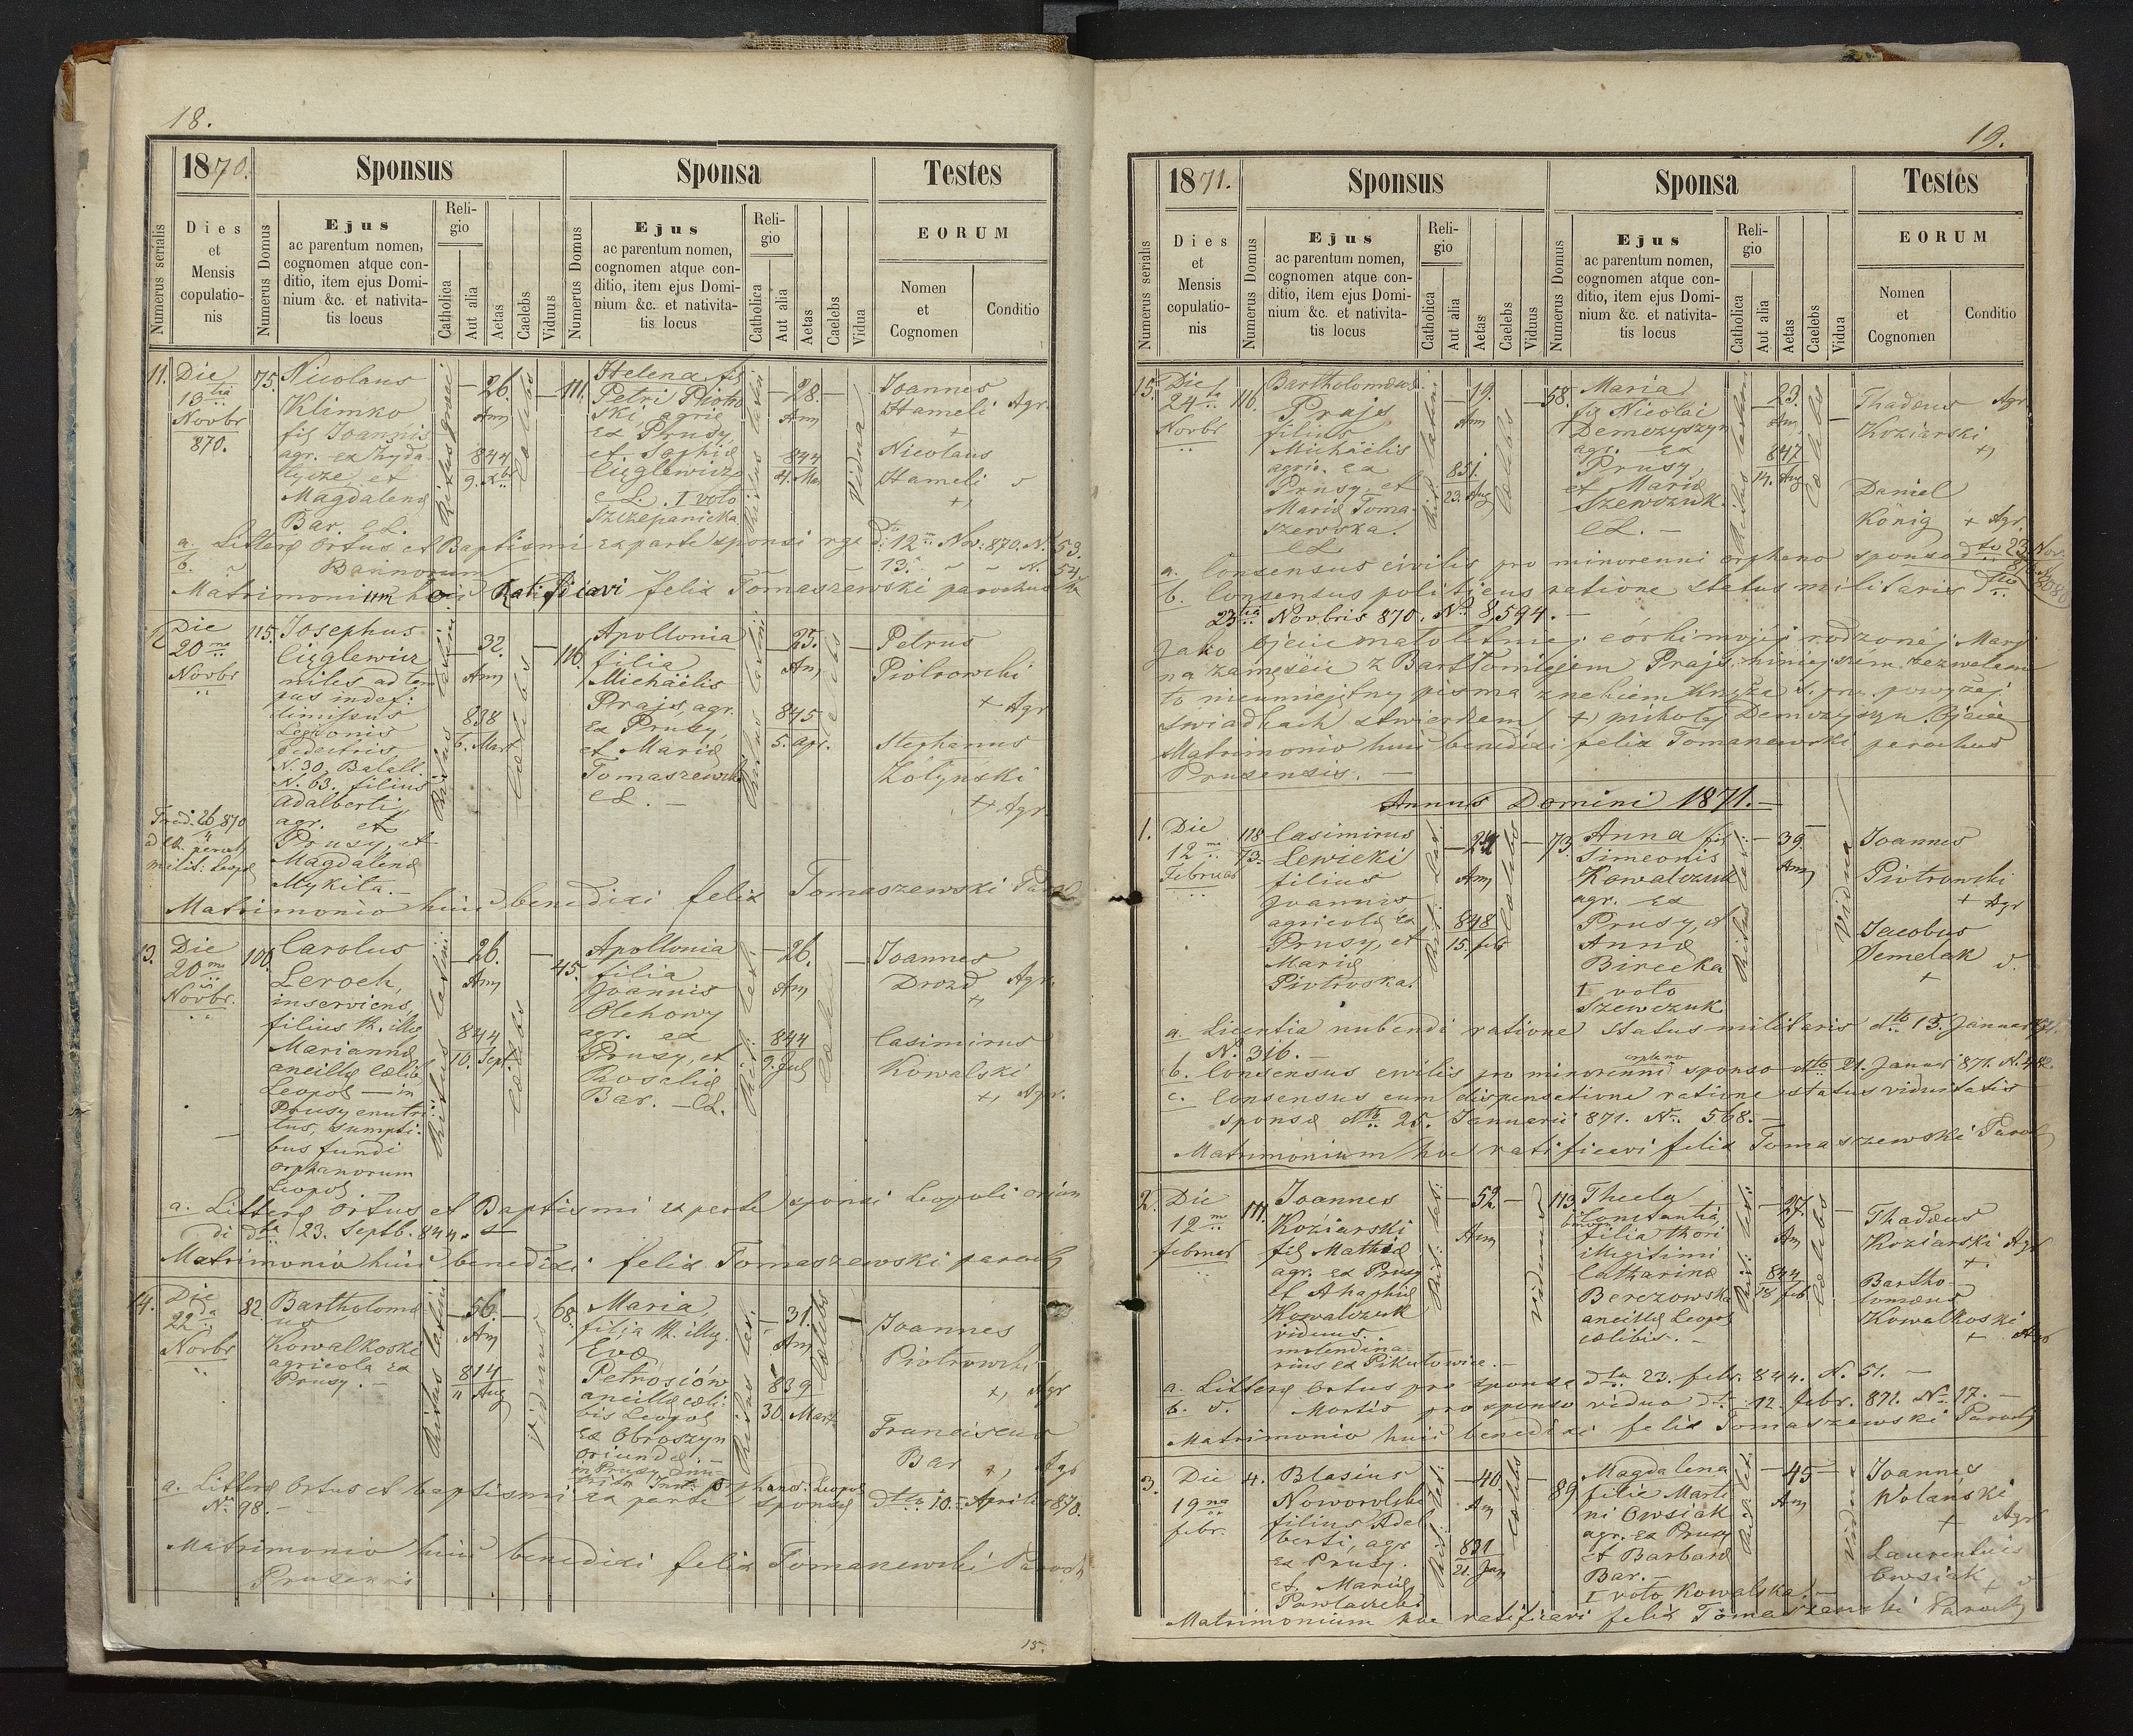 18.
1870.
Sponsus
Sponsa
Testes
Numerus serialis
Dies
et
Mensis
copulatio-
nis
Numerus Domus
Ejus
ac parentum nomen,
cognomen atque con-
ditio, item ejus Domi-
nium &c. et nativita-
tis locus
Reli-
gio
Catholica
Aut alia
Aetas
Caelebs
Viduus
Numerus Domus
Ejus
ac parentum nomen,
cognomen atque con-
ditio, item ejus Domi-
nium &c. et nativita-
tis locus
Reli-
gio
Catholica
Aut alia
Aetas
Caelebs
Vidua
EORUM
Nomen
et
Cognomen
Conditio
11.
Die
13 tia
Novbr
870.
75.
Nicolaus
Klimko
fil Joannis
agr. ex Zyda-
tycze, et
Magdalena
Bar. cL.
Ritus graeci
26.
Ann
844
9. Xbr
Caelebs
111.
Helena fil
Petri Piotro
ski, agric
ex Prusy,
et Sophia
Cięglewicz
cL. I voto
Szczepanicka
Ritus latini
28.
Ann
844
4. Mar
Vidua
Joannes
Hameli Agr.
+
Nicolaus
Hameli
++
a. Littere Ortus et Baptismi ex parte sponsi 12 Nov. 870. N. 53.
b. " Bannorum 13. " " N. 54.
Matrimonium hoc Ratificavi felix Tomaszewski parochus
12
Die
20 ma
Novbr
115.
Josephus
Cięglewicz
miles ad tem
pus indef:
dimissus
Legionis
pedestris
N. 30, Batall.
N. 63. filius
Adalberti,
agr. et
Prusy, et
Magdalena
Mykita.
Ritus latini
32.
Ann
838
6. Mart
Caelebs
116.
Apollonia
filia
Michäelis
Prajs, agr.
ex Prusy,
et Maria
Tomaszewska
cL.
Ritus latini
25.
Ann
845
5. Apr.
Caelebs
Petrus
Piotrowski
+ Agr
Stephanus
Zołyński
++ Agr.
Matrimonio huic benedixi felix Tomaszewski Paroch
13.
Die
20 ma
Novbr.
100.
Carolus
Leroch,
inserviens,
filius th. illeg
Marianna
ancilla caelib
Leopol — in
Prusy enutri-
tus, sumpti-
bus fundi
orphanorum
Leopol
Ritus latini
26.
Ann
844
10. Sept
Caelebs
45.
Apollonia
filia
Joannis
Olehowy
agr. ex
Prusy, et
Rosalia
Bar. — cL.
Rit: lat:
26.
Ann
844
9. Jul
Caelebs
Joannes
Drozd Agr.
++
Casimirus
Kowalski
++ Agr.
a. Littere Ortus et Baptismi ex parte sponsi Leopoli
23. Septb. 844.
Matrimonio huic benedixi felix Tomaszewski paroch
14.
Die
22 da
Novbr
82.
Bartholomae
us
Kowalkoski
agricola ex
Prusy.
Ritus latini
56.
Ann
814
" Aug
Viduus
68.
Maria,
filia th. illeg.
Eva
Petrosiów
ancilla caeli-
bis Leopol
ex Obroszyn
oriunda.
Ritus lat.
31.
Ann
839
30. Mart
Caelebs
Joannes
Piotrowski
++ Agr
Franciscus
Bar + Agr
a. Littere Ortus et baptismi ex parte sponsa dto 10. Aprilis 870.
No 98.
Matrimonio huic benedixi felix Tomaszewski Paroch
Prusensis
15.
19.
1871.
Sponsus
Sponsa
Testes
Numerus serialis
Dies
et
Mensis
copulatio-
nis
Numerus Domus
Ejus
ac parentum nomen,
cognomen atque con-
ditio, item ejus Domi-
nium &c. et nativita-
tis locus
Reli-
gio
Catholica
Aut alia
Aetas
Caelebs
Viduus
Numerus Domus
Ejus
ac parentum nomen,
cognomen atque con-
ditio, item ejus Domi-
nium &c. et nativita-
tis locus
Reli-
gio
Catholica
Aut alia
Aetas
Caelebs
Vidua
EORUM
Nomen
et
Cognomen
Conditio
15.
Die
24 ta
Novbr
116.
Bartholomaeus
Prajs
filius
Michäelis
agric. ex
Prusy, et
Maria Toma-
szewska.
cL
Rit: latini
19.
Ann
851.
23. Aug
Caelebs
58.
Maria
fil Nicolai
Demczyszyn
agr. ex
Prusy,
et Maria
Szewczuk
cL.
Ritus latini
23.
Ann
847
14. Aug
Caelebs
Thadaeus Agr
Koziarski
+
Daniel
König + Agr.
a. Consensus civilis pro minorenni orphano sponso dto 23. Nov.
b. Consensus politicus ratione status militaris dto
23 tia Novbris 870. No 8,594.
Jako Ojciec małoletniej córki mojej rodzonej Maryi
na zamęście z Bartłomiejem Prajs, niniejszem zezwalam
to nieumiejętny pisma znakiem Krzyża S. przy powyżej
świadkach stwierdzam +) Mikołaj Demczyszyn Ojciec
Matrimonio huic benedixi felix Tomaszewski parochus
Prusensis.
Annus Domini 1871.
1.
Die
12 ma
Februar
118
73.
Casimirus
Lewicki
filius
Joannis
agricola ex
Prusy, et
Maria
Piotroska.
Rit: Lat:
24
Ann
848
15. feb
Caelebs
73.
Anna fil
Simeonis
Kowalczuk
agr. ex
Prusy, et
Anna
Birecka
I voto
Szewczuk
Ritus lat:
39
Ann
Vidua
Joannes
Piotrowski
+ Agr
Jacobus
Semelak
+
a. Licentia nubendi ratione status militaris dto 13. Januar 871.
N. 316.
b. Consensus civilis pro minorenni orphano sponso dto 21. Januar 871. N. 482.
c. Consensus cum dispensatione ratione status viduitatis
sponsa dto 25. Januarii 871. No 568.
Matrimonium hoc ratificavi felix Tomaszewski Paroch
2.
Die
12 ma
februar
111.
Joannes
Koziarski
fil Mathia
agr. ex Prusy
et Ahaphia
Kowalczuk
viduus.
molendina-
rius ex Pikułowice.
Rit: lat:
52
Ann
Viduus
113.
Thecla
Constantia,
filia thori
illegitimi
Catharina
Berezowska
ancilla Leopol
caelibis.
Rit: lat:
27.
Ann
844
18 feb
Caelebs
Thadaeus
Koziarski Agr
+
Bartho-
lomaeus
Kowalkoski
+ Agr
a. Littere Ortus pro sponsa dto 23. febr. 844. N. 51.
b. d. Mortis pro sponso viduo dto 12. febr. 871. No 17.
Matrimonio huic benedixi felix Tomaszewski Paroch
3.
Die
19 na
febr.
4.
Blasius
Noworolski
filius Adal
berti, agr
ex Prusy.
et Maria
Rit: lat:
40
Ann
831
21. Jan
Caelebs
89
Magdalena
filia Marti
ni Owsiak
agr. ex Prusy
et Barbara
Bar.
I voto Kowalska.
Rit: lat:
45
Ann
Vidua
Joannes
Wolanski
+ Agr
Laurentius
Owsiak
+
Matrimonium hoc ratificavi felix Tomaszewski Paroch